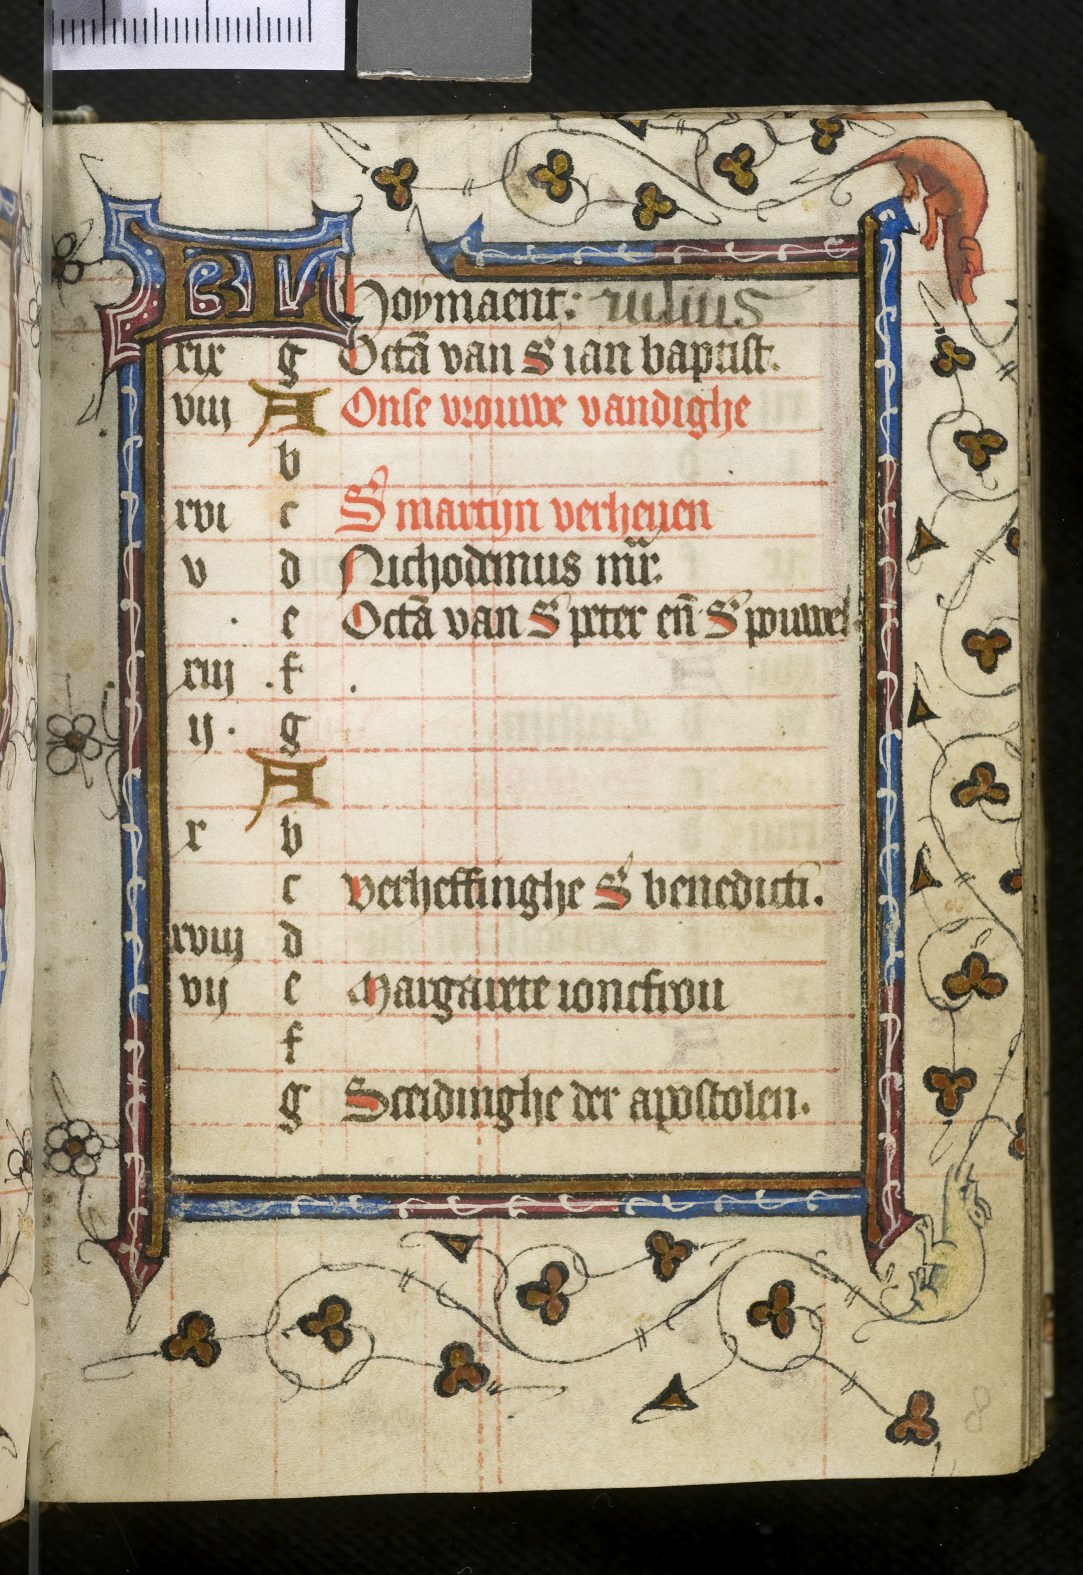 KL Hoymaent: iulius
xix g Octa᷃ van S ian baptist.
viij A Onse vrouwe van dighe
b
xvi c S martijn verheuen
v d Nichodemus mr̃.
e Octa᷃ van S peter en̄ S pouwel
xiij f
ij g
A
x b
c Verheffinghe S benedicti.
xviij d
vij e Margarete ioncfrou
f
g Sceidinghe der apostolen.
8